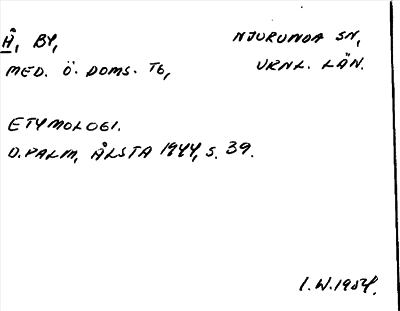 Å, BY, NJURUNDA SN,
MED. Ö. DOMS. TG, VRNL. LÄN.
ETYMOLOGI.
D. PALM, ÅLSTA 1944, S. 39.
I. W. 1954.